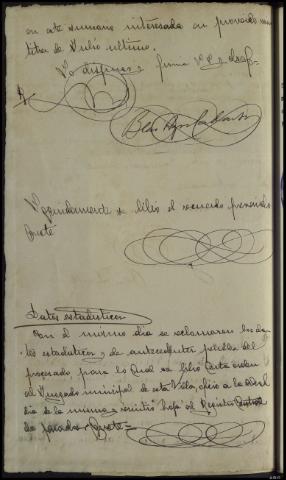 en este sumario interesada en proveido
de Julio ultimo.
Lo dispuso y firma S.S. doy fe
Seguidamente se libró el recuerdo prevenido
Doy fe
Datos estadisticos
En el mismo dia se reclamaron los da-
tos estadisticos y de antecedentes penales del
procesado para lo cual se libró carta orden
al Juzgado municipal de esta Villa, oficio a la
de la misma y remitió hoja al Registro Central
de penados. Doy fe =